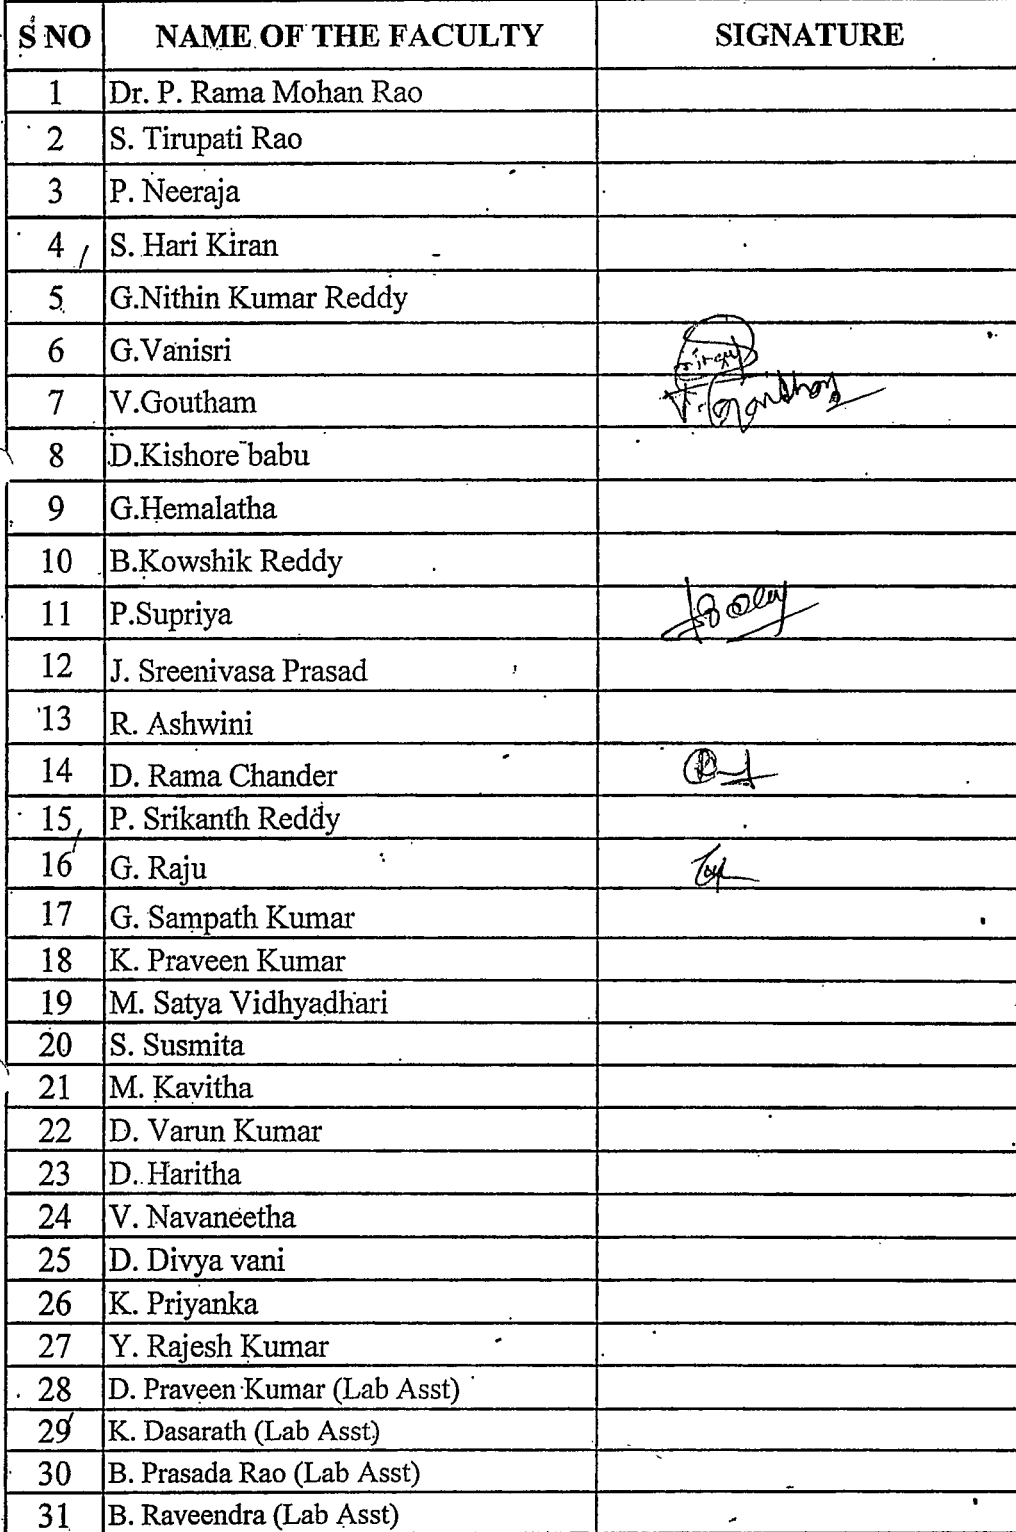 S NO NAME OF THE FACULTY SIGNATURE
1 Dr. P. Rama Mohan Rao
2 S. Tirupati Rao
3 P. Neeraja
4 S. Hari Kiran
5 G.Nithin Kumar Reddy
6 G.Vanisri
7 V.Goutham
8 D.Kishore babu
9 G.Hemalatha
10 B.Kowshik Reddy
11 P.Supriya
12 J. Sreenivasa Prasad
13 R. Ashwini
14 D. Rama Chander
15 P. Srikanth Reddy
16 G. Raju
17 G. Sampath Kumar
18 K. Praveen Kumar
19 M. Satya Vidhyadhari
20 S. Susmita
21 M. Kavitha
22 D. Varun Kumar
23 D. Haritha
24 V. Navaneetha
25 D. Divya vani
26 K. Priyanka
27 Y. Rajesh Kumar
28 D. Praveen Kumar (Lab Asst)
29 K. Dasarath (Lab Asst)
30 B. Prasada Rao (Lab Asst)
31 B. Raveendra (Lab Asst)